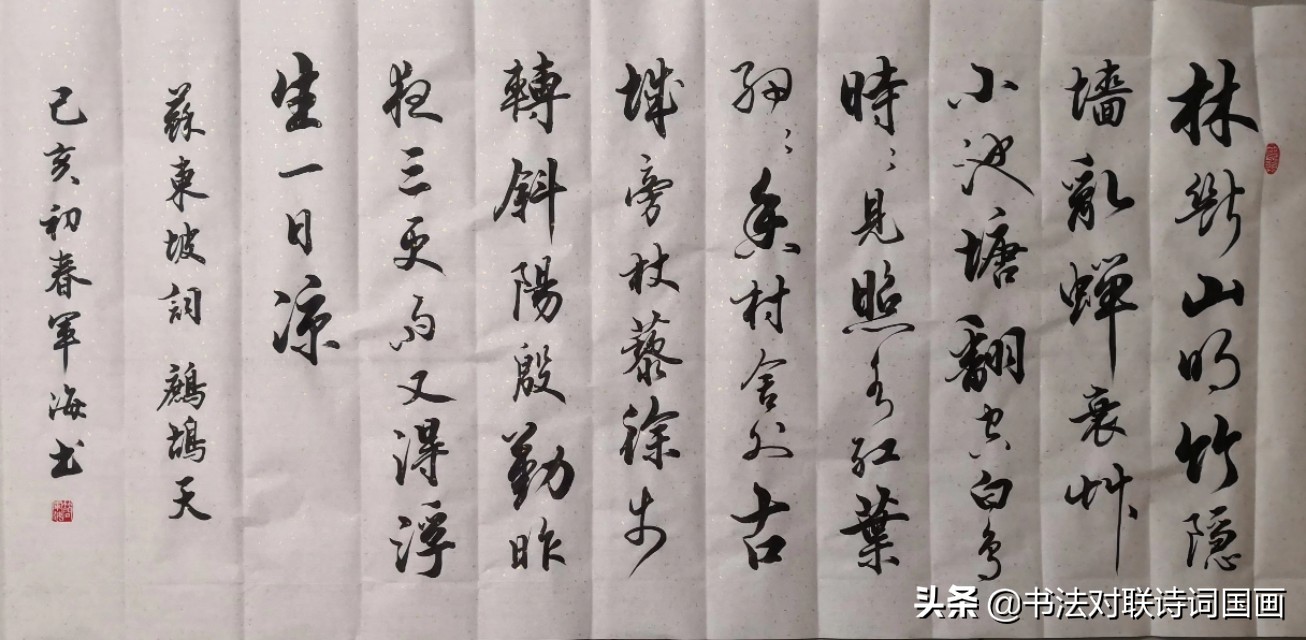 林斷山明竹隐
墻亂蝉衰艸
小池塘翻空白鸟
時〻見照水红葉
细〻香村舍外古
城旁杖藜徐步
轉斜陽殷勤昨
夜三更雨又得浮
生一日凉
蘇東坡詞 鷓鴣天
己亥初春军海书
头条 @书法对联诗词国画